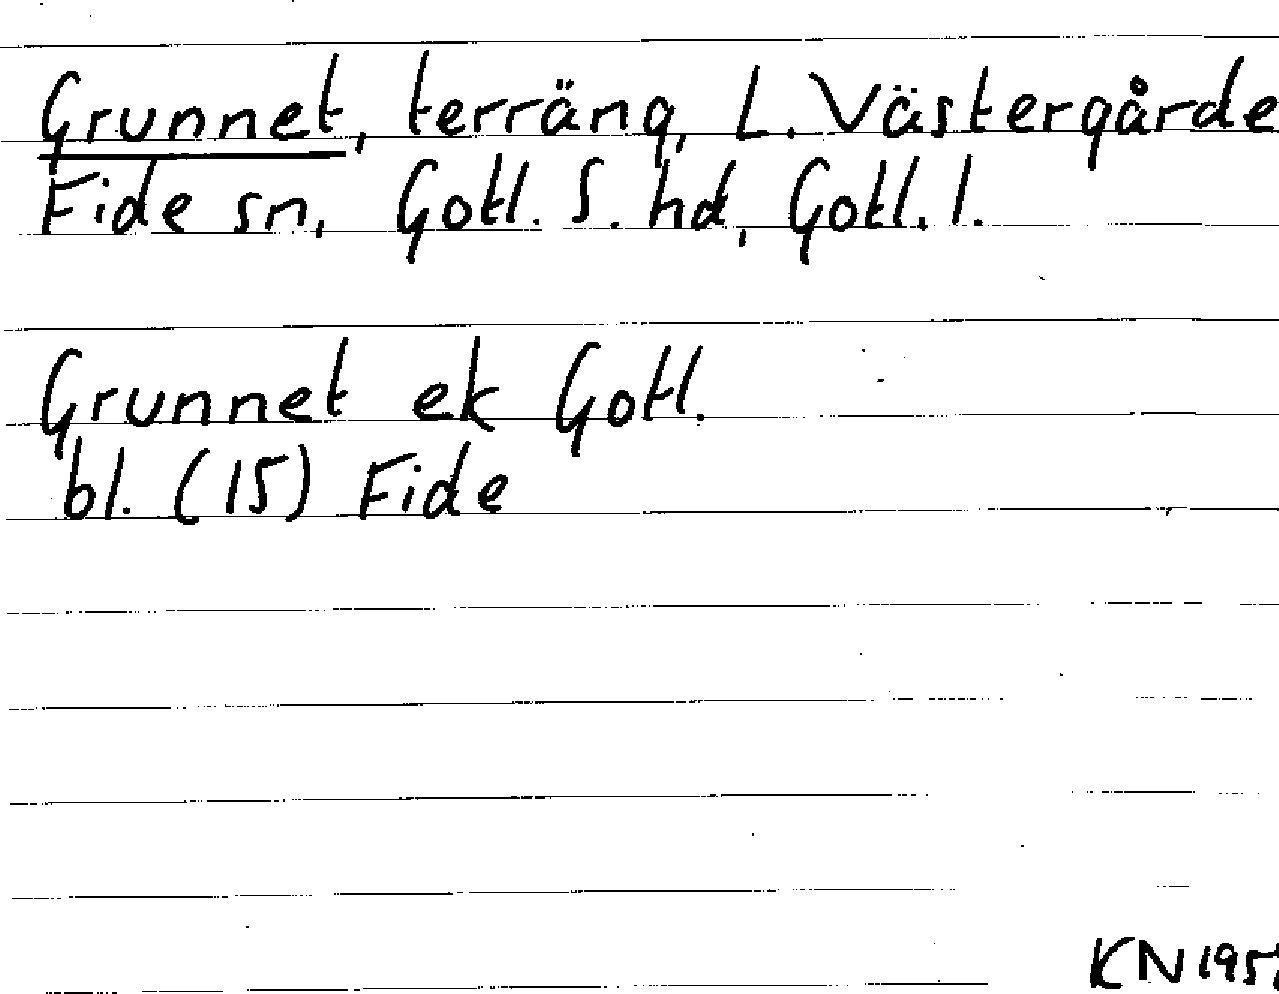 Grunnet, terräng, L. Västergårde
Fide sn, Gotl. S. hd, Gotl. l.
Grunnet ek Gotl.
bl. (15) Fide
KN